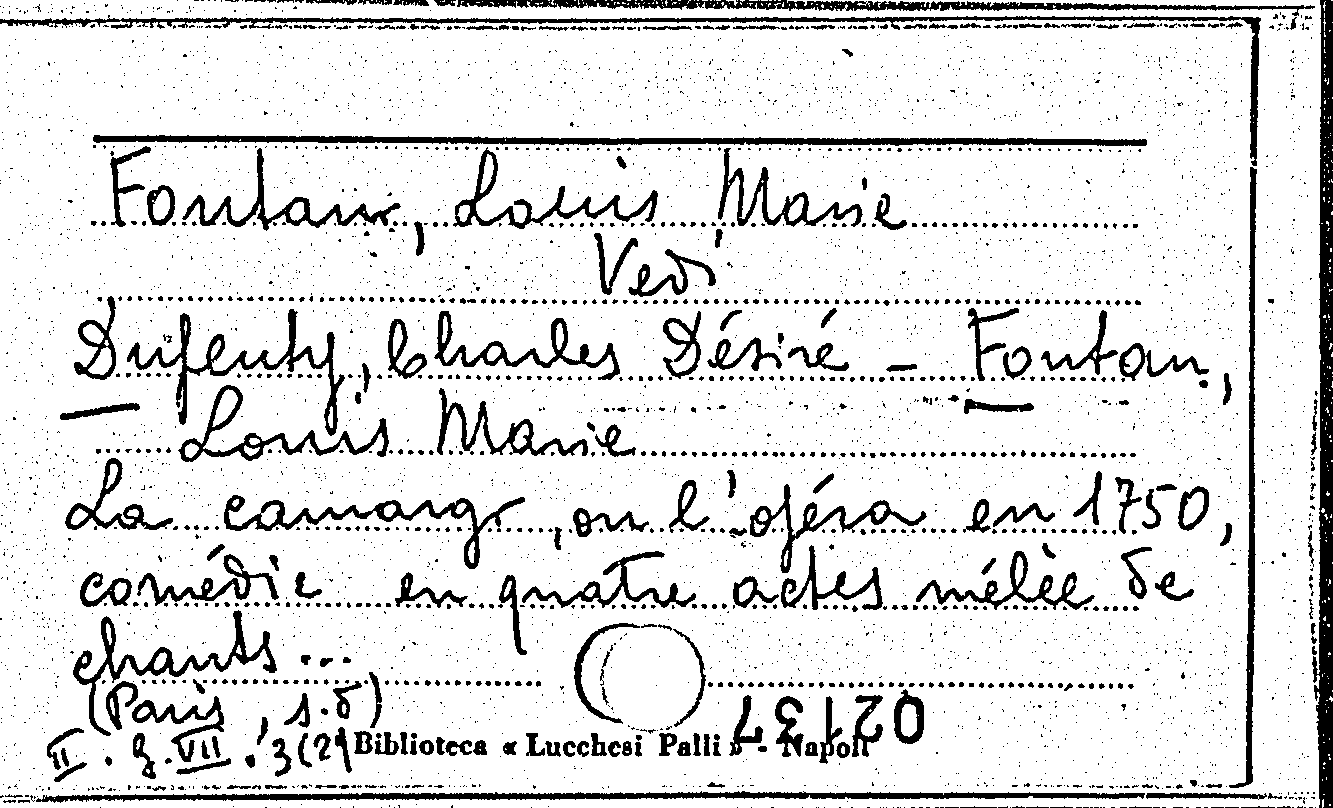 Fontan, Louis Marie
Vedi
Dupeuty, Charles Désiré – Fontan,
Louis Marie
La camargo, ou l'opéra en 1750,
comédie en quatre actes mêlée de
chants...
(Paris, s.d)
II. g. VII. 3(2)
Biblioteca « Lucchesi Palli » - Napoli
02137